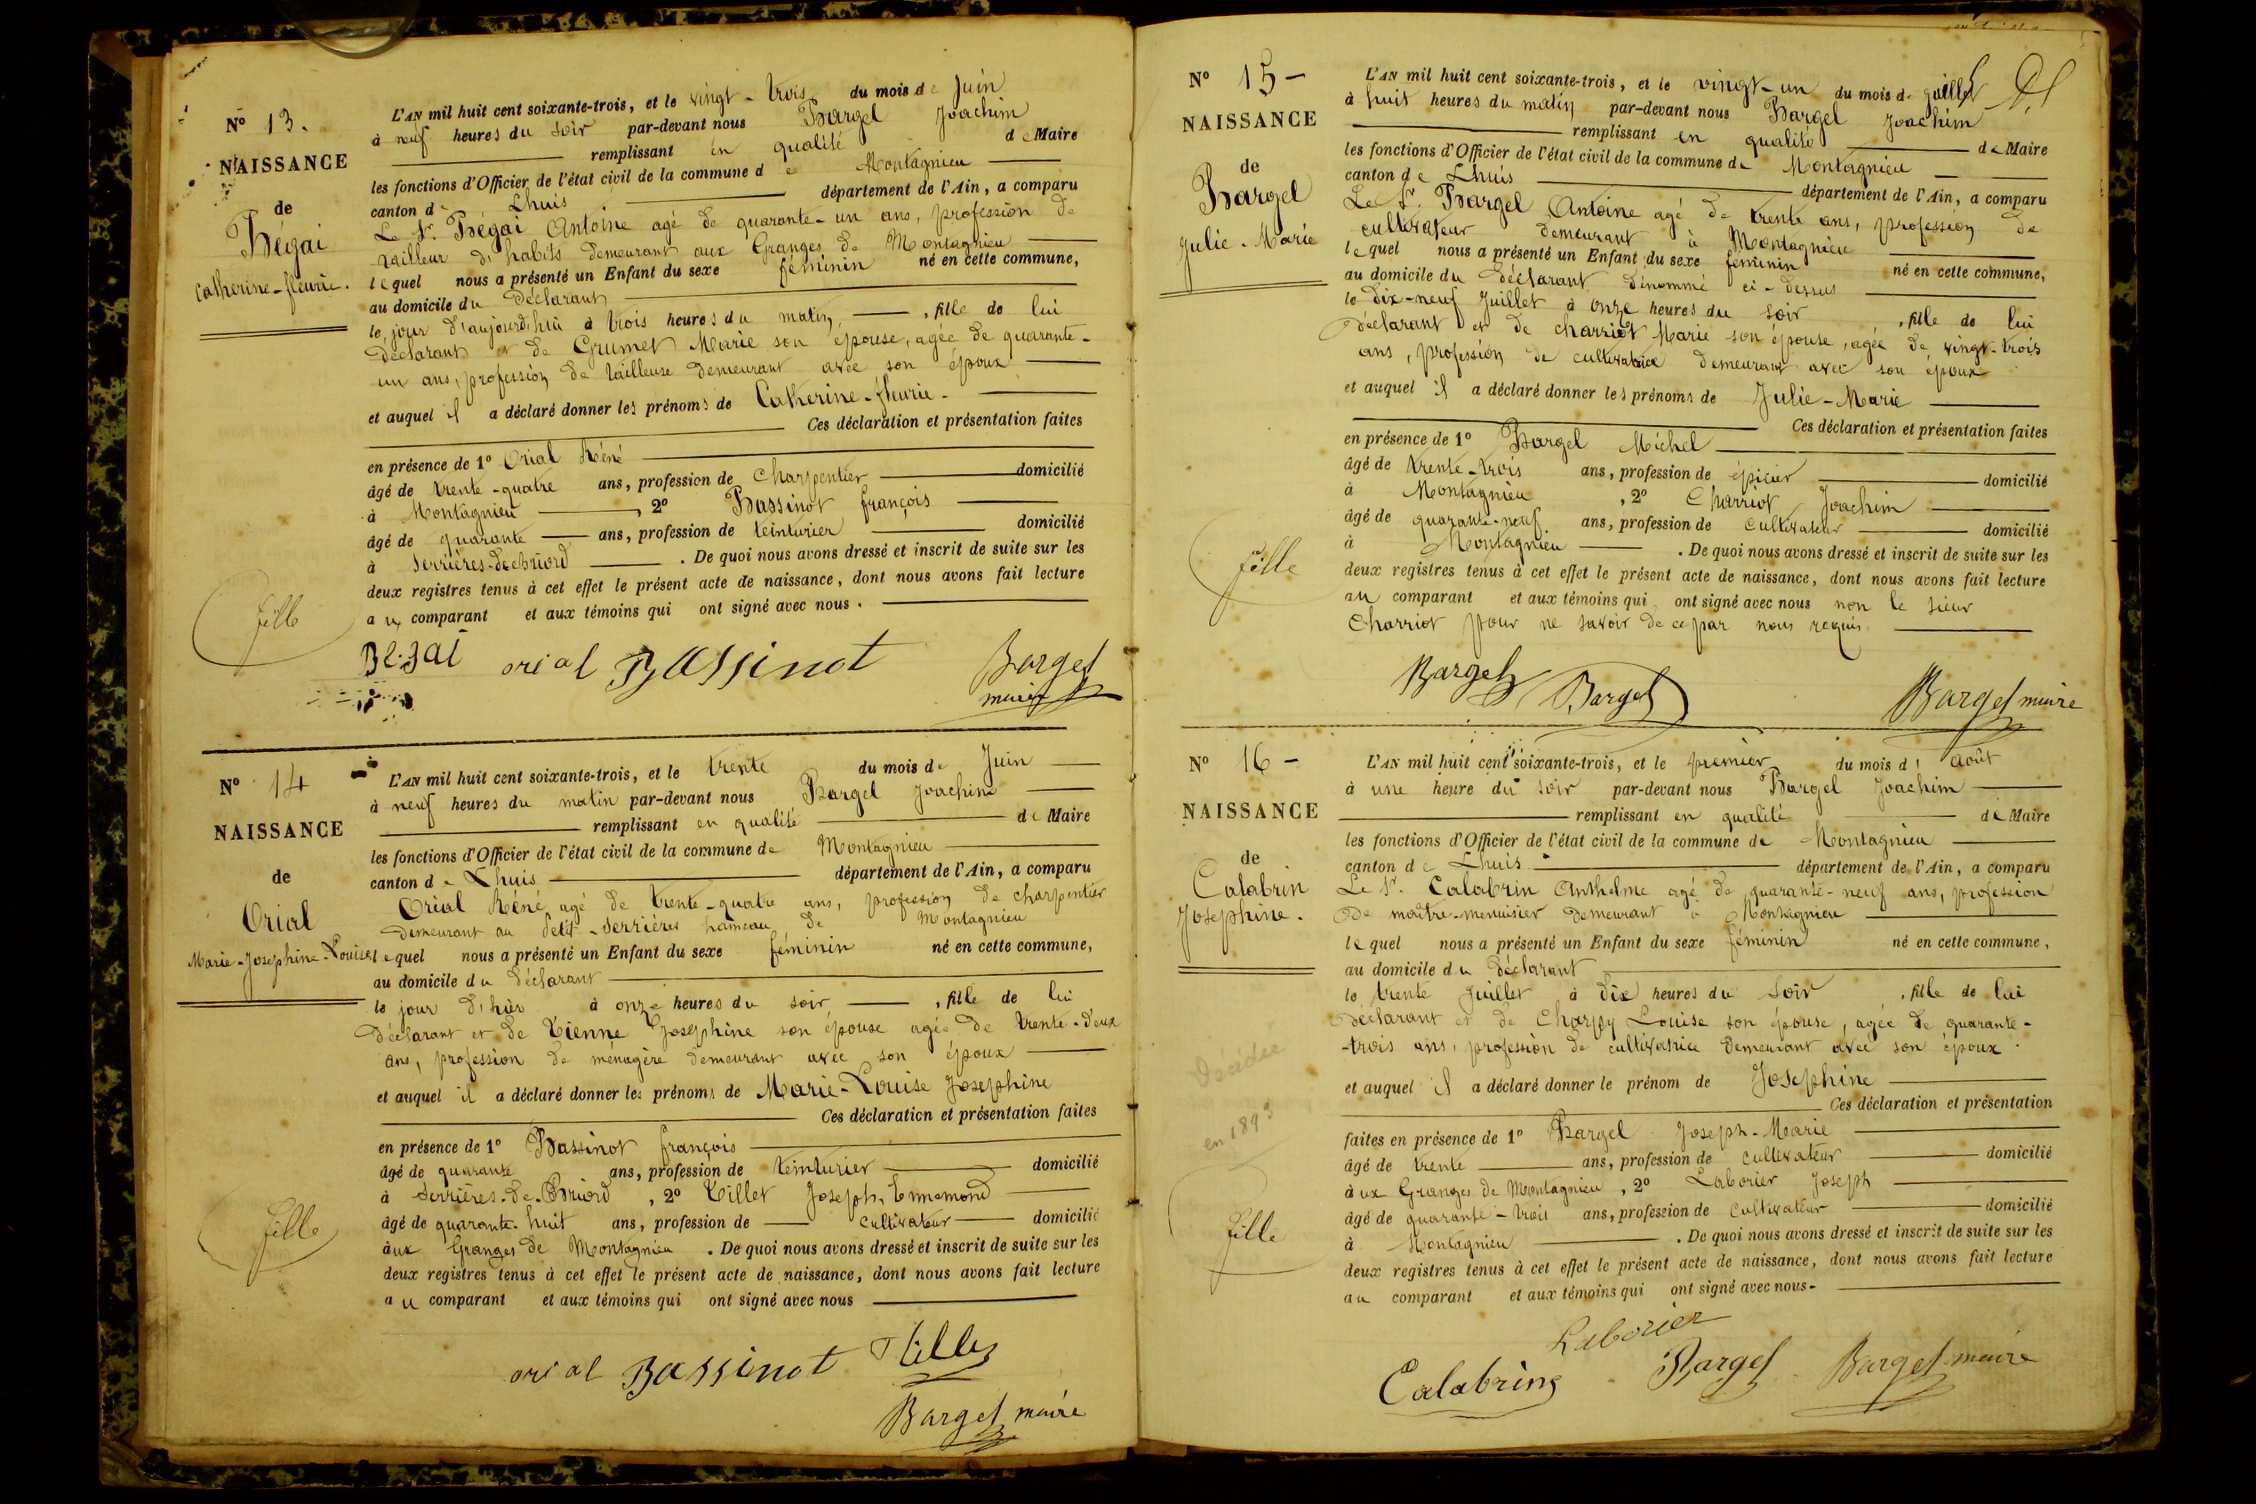 N° 13.
NAISSANCE
de
Bégai
Catherine-fleurie.
fille
L'AN mil huit cent soixante-trois, et le vingt-trois du mois de Juin
à neuf heures du soir par-devant nous Bargel Joachim
remplissant en qualité de Maire
les fonctions d'Officier de l'état civil de la commune de Montagnieu
canton de Lhuis département de l'Ain, a comparu
Le Sr. Bégai Antoine agé de quarante-un ans, profession de
tailleur d'habits demeurant aux Granges de Montagnieu
lequel nous a présenté un Enfant du sexe féminin né en cette commune,
au domicile du Déclarant
le jour d'aujourd'hui à trois heures du matin, fille de lui
déclarant et de Grumet Marie son épouse, agée de quarante-
un ans, profession de tailleuse demeurant avec son époux
et auquel il a déclaré donner les prénoms de Catherine-fleurie-
Ces déclaration et présentation faites
en présence de 1° Orial Réné
âgé de trente-quatre ans, profession de Charpentier domicilié
à Montagnieu, 2° Bassinot françois
âgé de quarante ans, profession de teinturier domicilié
à Serrières-de-Briord. De quoi nous avons dressé et inscrit de suite sur les
deux registres tenus à cet effet le présent acte de naissance, dont nous avons fait lecture
au comparant et aux témoins qui ont signé avec nous.
Begai orial Bassinot Bargel
maire
N° 14
NAISSANCE
de
Orial
Marie-Josephine-Louise
fille
L'AN mil huit cent soixante-trois, et le trente du mois de Juin
à neuf heures du matin par-devant nous Bargel Joachim
remplissant en qualité de Maire
les fonctions d'Officier de l'état civil de la commune de Montagnieu
canton de Lhuis département de l'Ain, a comparu
Orial Réné agé de trente-quatre ans, profession de charpentier
demeurant au Petit-Serrières hameau de Montagnieu
lequel nous a présenté un Enfant du sexe féminin né en cette commune,
au domicile du Déclarant
le jour d'hier à onze heures du soir, fille de lui
déclarant et de Tienne Josephine son épouse agée de trente-deux
ans, profession de ménagère demeurant avec son époux
et auquel il a déclaré donner les prénoms de Marie-Louise Josephine
Ces déclaration et présentation faites
en présence de 1° Bassinot françois
âgé de quarante ans, profession de teinturier domicilié
à Serrières-de-Briord, 2° Tillet Joseph-Ennemond
âgé de quarante-huit ans, profession de cultivateur domicilié
aux Granges de Montagnieu. De quoi nous avons dressé et inscrit de suite sur les
deux registres tenus à cet effet le présent acte de naissance, dont nous avons fait lecture
au comparant et aux témoins qui ont signé avec nous
orial Bassinot Tillet
Bargel maire
N° 15-
NAISSANCE
de
Bargel
Julie-Marie
fille
L'AN mil huit cent soixante-trois, et le vingt-un du mois de juillet
à huit heures du matin par-devant nous Bargel Joachim
remplissant en qualité de Maire
les fonctions d'Officier de l'état civil de la commune de Montagnieu
canton de Lhuis département de l'Ain, a comparu
Le Sr. Bargel Antoine agé de trente ans, profession de
cultivateur demeurant à Montagnieu
lequel nous a présenté un Enfant du sexe féminin né en cette commune,
au domicile du déclarant dénommé ci-dessus
le dix-neuf Juillet à onze heures du soir, fille de lui
déclarant et de Charriot Marie son épouse, agée de vingt-trois
ans, profession de cultivatrice demeurant avec son époux
et auquel il a déclaré donner les prénoms de Julie-Marie
Ces déclaration et présentation faites
en présence de 1° Bargel Michel
âgé de trente-trois ans, profession de épicier domicilié
à Montagnieu, 2° Charriot Joachim
âgé de quarante-neuf ans, profession de cultivateur domicilié
à Montagnieu. De quoi nous avons dressé et inscrit de suite sur les
deux registres tenus à cet effet le présent acte de naissance, dont nous avons fait lecture
au comparant et aux témoins qui ont signé avec nous non le sieur
Charriot pour ne savoir de ce par nous requis.
Bargel Bargel Bargel maire
N° 16-
NAISSANCE
de
Calabrin
Josephine.
Décédée
fille
L'AN mil huit cent soixante-trois, et le premier du mois d'août
à une heure du soir par-devant nous Bargel Joachim
remplissant en qualité de Maire
les fonctions d'Officier de l'état civil de la commune de Montagnieu
canton de Lhuis département de l'Ain, a comparu
Le Sr. Calabrin Anthelme agé de quarante-neuf ans, profession
de maître-menuisier demeurant à Montagnieu
lequel nous a présenté un Enfant du sexe féminin né en cette commune,
au domicile du déclarant
le trente Juillet à dix heures du soir, fille de lui
déclarant et de Charpy Louise son épouse, agée de quarante-
-trois ans, profession de cultivatrice demeurant avec son époux.
et auquel il a déclaré donner le prénom de Josephine
Ces déclaration et présentation
faites en présence de 1° Bargel Joseph-Marie
âgé de trente ans, profession de cultivateur domicilié
aux Granges de Montagnieu, 2° Laborier Joseph
âgé de quarante-trois ans, profession de cultivateur domicilié
à Montagnieu. De quoi nous avons dressé et inscrit de suite sur les
deux registres tenus à cet effet le présent acte de naissance, dont nous avons fait lecture
au comparant et aux témoins qui ont signé avec nous-
Laborier
Calabring Bargel Bargel maire